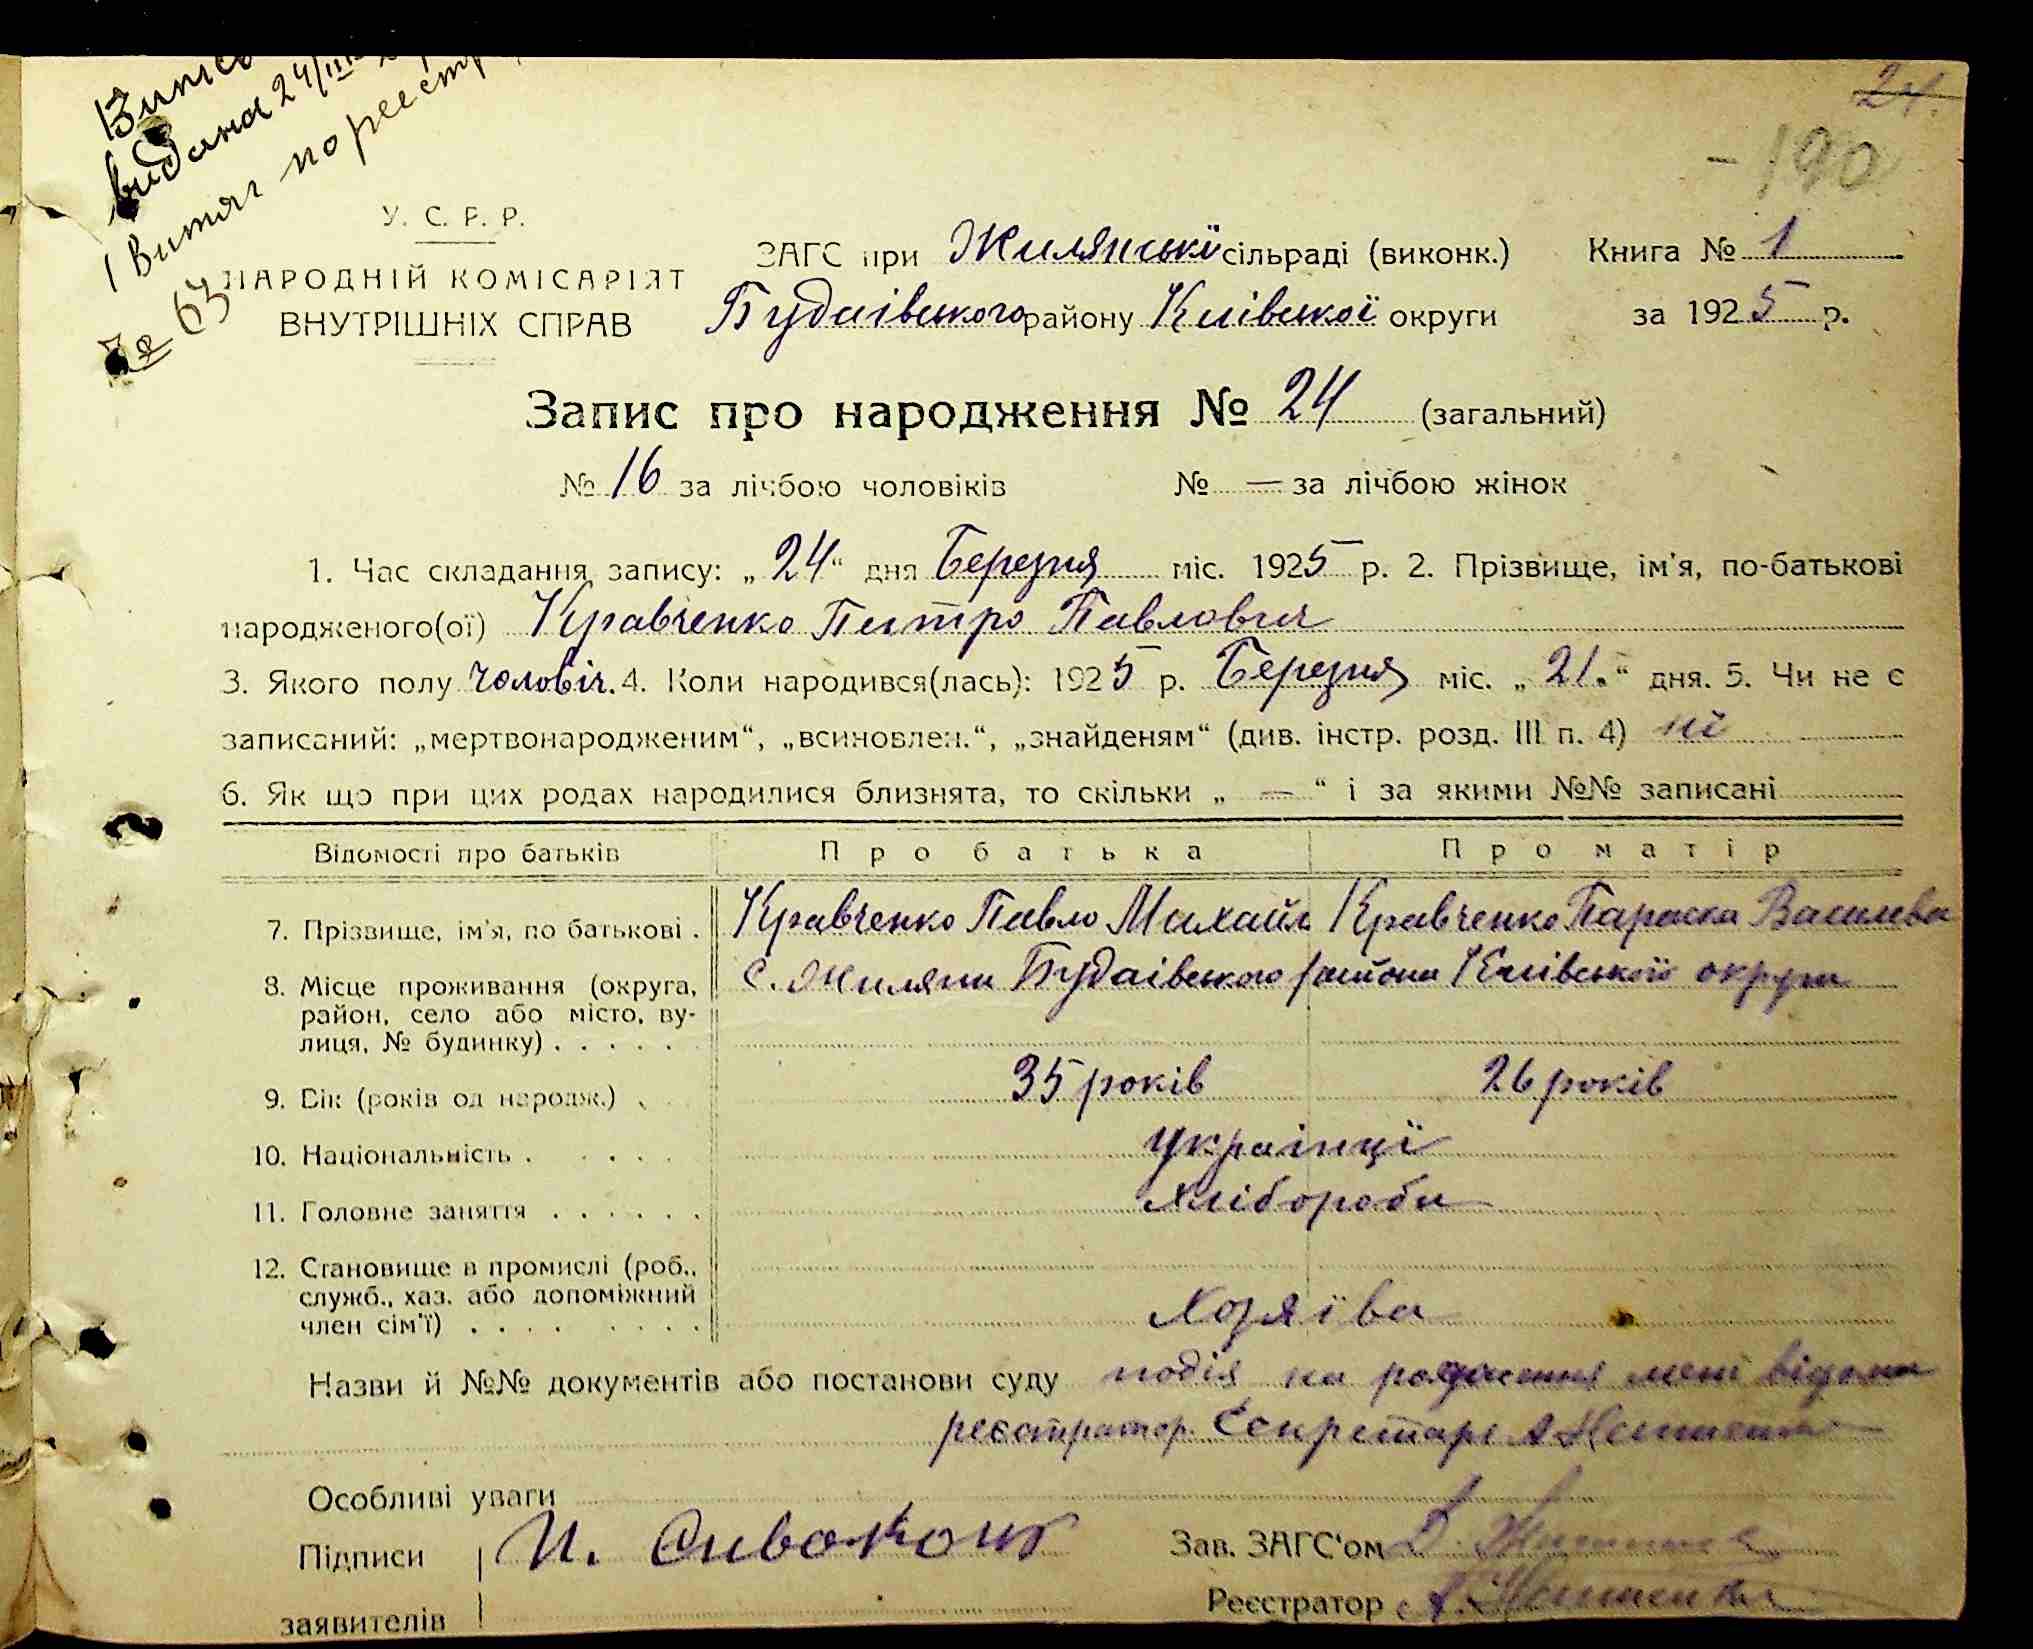 видана 24/III
1 Витяг по реєстр
№ 63
24.
190
У. С. Р. Р.
НАРОДНІЙ КОМІСАРІЯТ
ВНУТРІШНІХ СПРАВ
ЗАГС при Жилянській сільраді (виконк.) Книга № 1
Будаівського району Киівськоі округи за 1925 р.
Запис про народження № 24 (загальний)
№ 16 за лічбою чоловіків № — за лічбою жінок
1. Час складання запису: „24“ дня Березня міс. 1925 р. 2. Прізвище, ім'я, по-батькові
народженого(ої) Кравченко Петро Павлович
3. Якого полу чоловіч. 4. Коли народився(лась): 1925 р. Березня міс. „21.“ дня. 5. Чи не є
записаний: „мертвонародженим“, „всиновлен.“, „знайденям“ (див. інстр. розд. III п. 4) ні
6. Як що при цих родах народилися близнята, то скільки „ — “ і за якими №№ записані
Відомості про батьків Про батька Про матір
7. Прізвище, ім'я, по батькові . Кравченко Павло Михайл Кравченко Параска Василева
8. Місце проживання (округа, с. Жиляни Будаівського района Киівськоі округи
район, село або місто, ву-
лиця, № будинку) . . . . .
9. Вік (років од народж.) . 35 років 26 років
10. Національність . . . . . украінці
11. Головне заняття . . . . . . хлібороби
12. Становище в промислі (роб.,
служб., хаз. або допоміжний
член сім'ї) . . . . . . . . Хозяїва
Назви й №№ документів або постанови суду подія на рождення мені відома
реєстратор. Секретарь А
Особливі уваги
Підписи И. Сивоконь Зав. ЗАГС'ом
заявителів Реєстратор А.